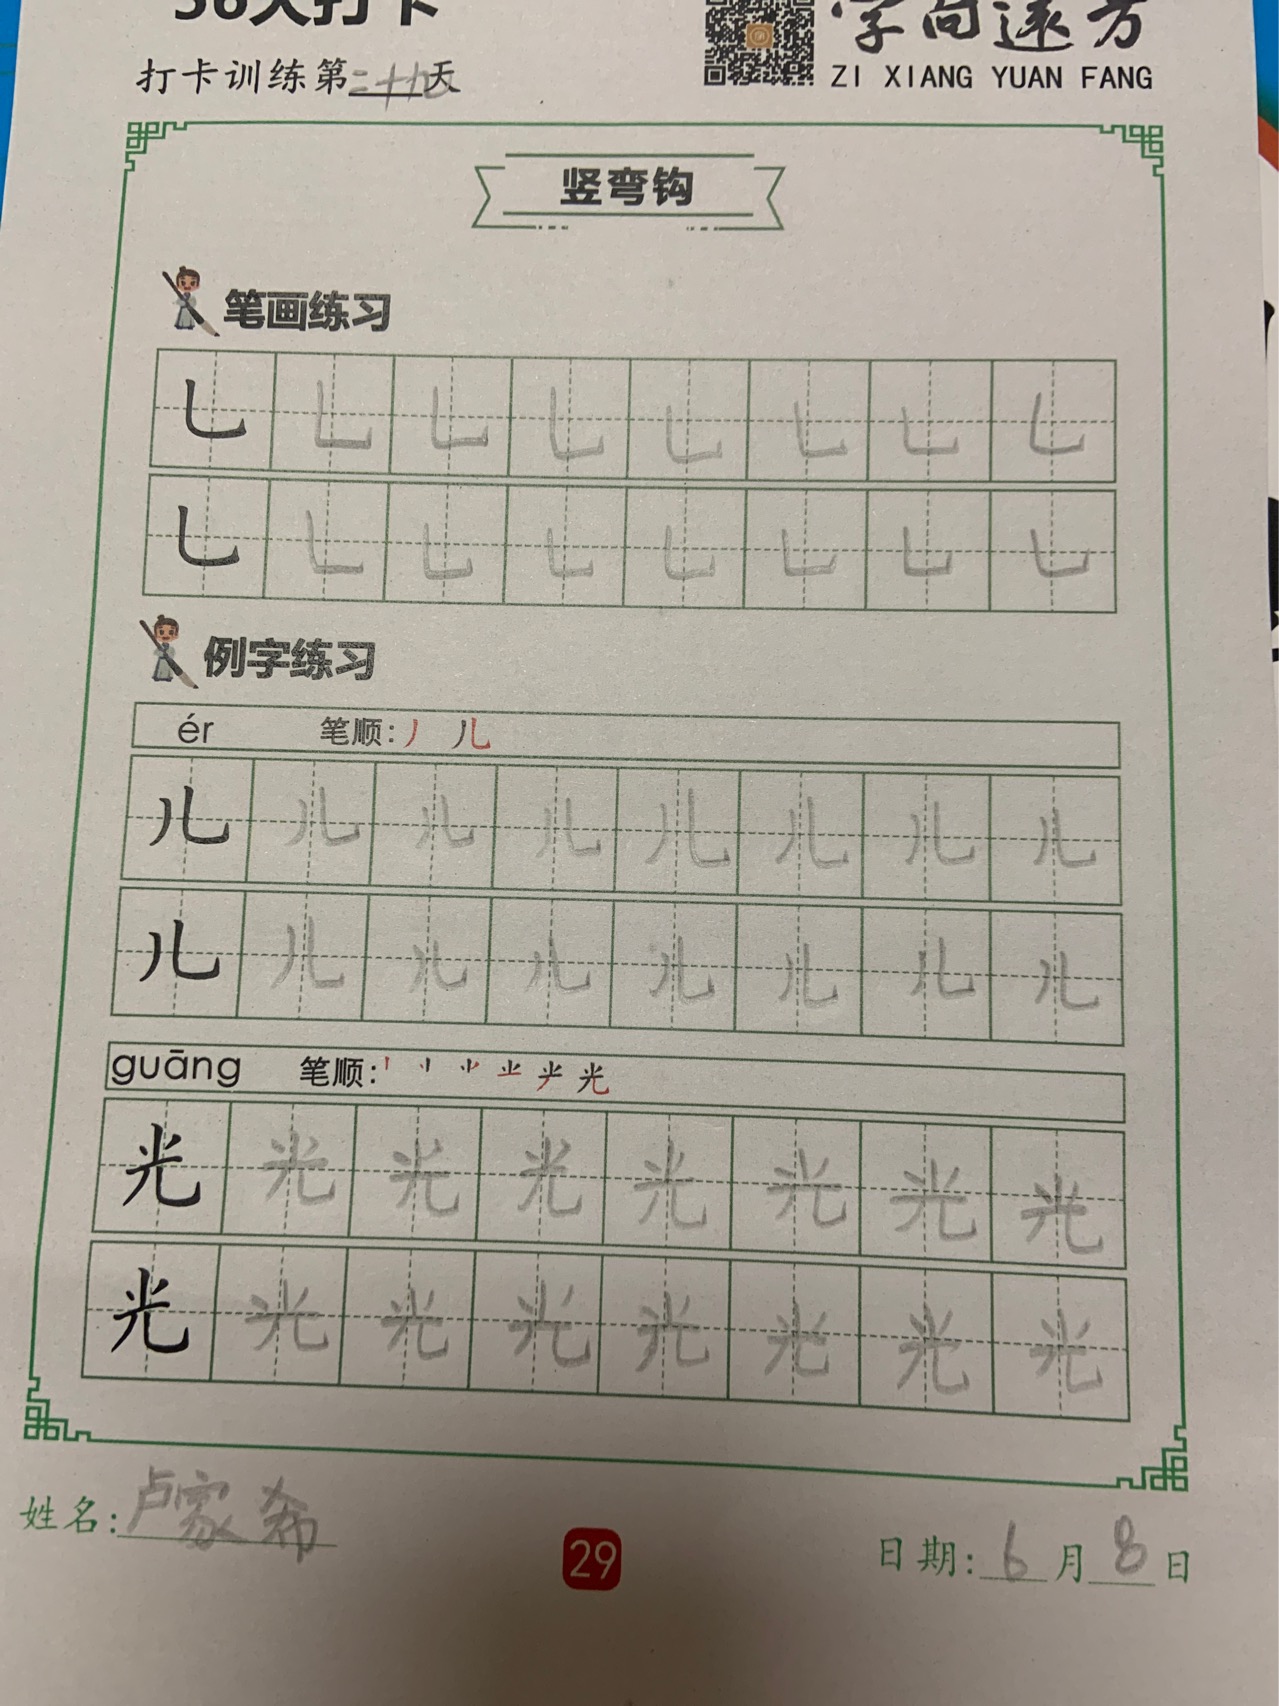 打卡
字向远方
ZI XIANG YUAN FANG
打卡训练第 天
竖弯钩
笔画练习
乚 乚 乚 乚 乚 乚 乚 乚
乚 乚 乚 乚 乚 乚 乚 乚
例字练习
ér 笔顺: 丿 儿
儿 儿 儿 儿 儿 儿 儿 儿
儿 儿 儿 儿 儿 儿 儿 儿
guāng 笔顺: 光
光 光 光 光 光 光 光 光
光 光 光 光 光 光 光 光
姓名: 卢家希
29
日期: 6月8日